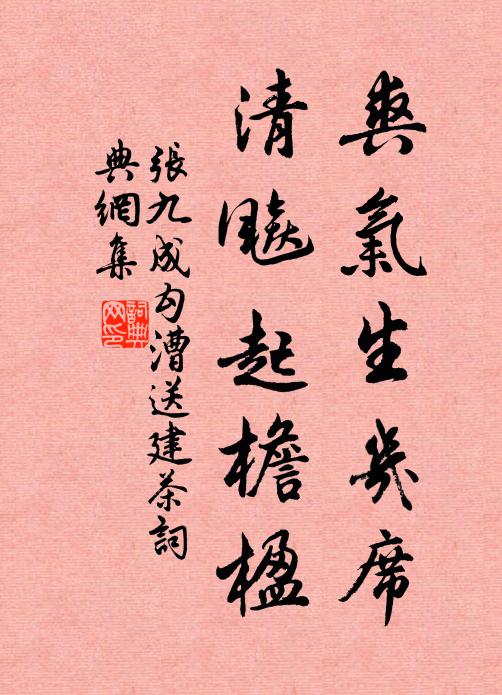 爽氣生幾席
清飈起檐楹
張九成勾漕送建茶詞
典網集
詞典网印